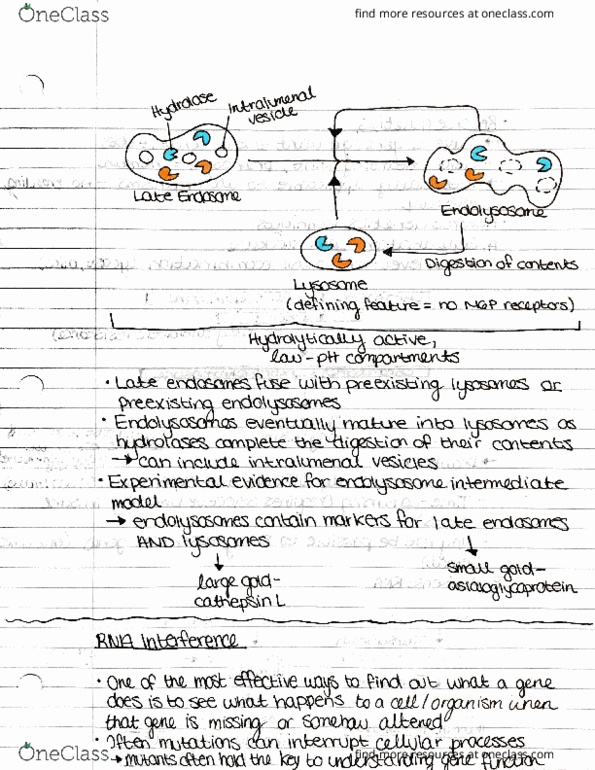 OneClass
find more resources at oneclass.com
Hydrolase
Intralumenal
vesicle
Late Endosome
Endolysosome
Digestion of contents
Lysosome
(defining feature = no M6P receptors)
Hydrolytically active,
low-pH compartments
• Late endosomes fuse with preexisting lysosomes or
preexisting endolysosomes
• Endolysosomes eventually mature into lysosomes as
hydrolases complete the digestion of their contents
→ can include intralumenal vesicles
• Experimental evidence for endolysosome intermediate
model
→ endolysosomes contain markers for late endosomes
AND lysosomes
large gold-
cathepsin L
small gold-
asialoglycoprotein
RNA Interference
• One of the most effective ways to find out what a gene
does is to see what happens to a cell/organism when
that gene is missing or somehow altered
• Often mutations can interrupt cellular processes
→ Mutants often hold the key to understanding gene function
OneClass
find more resources at oneclass.com